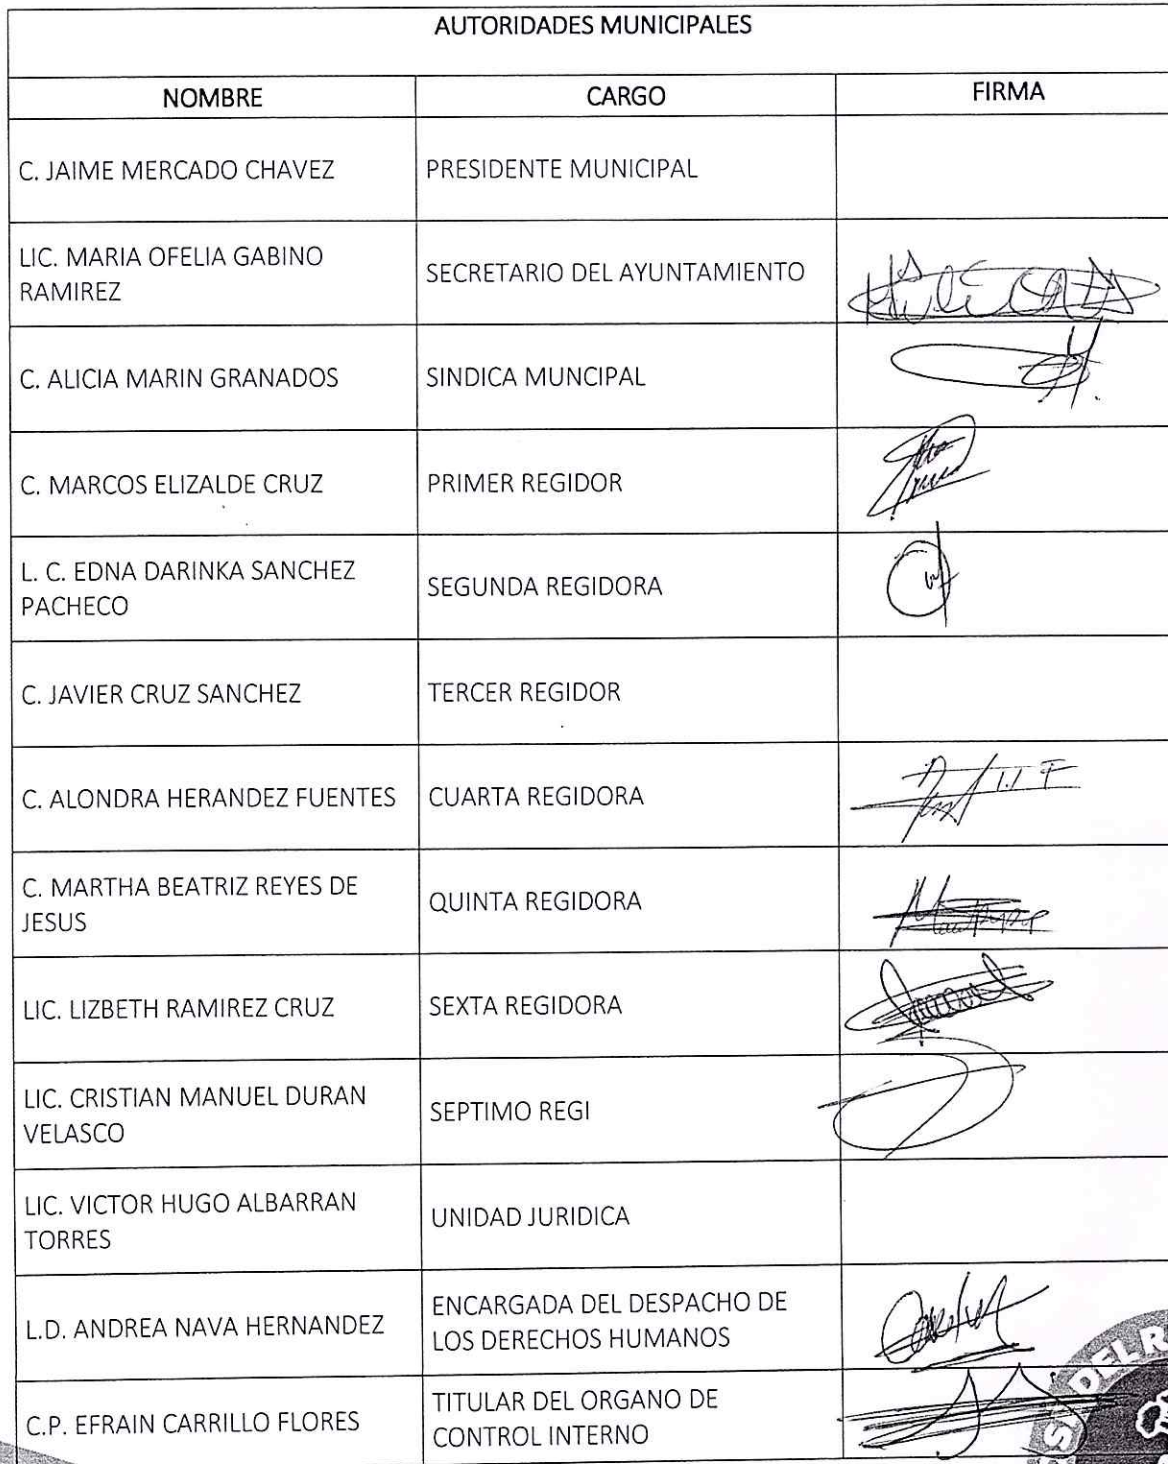 AUTORIDADES MUNICIPALES
NOMBRE CARGO FIRMA
C. JAIME MERCADO CHAVEZ PRESIDENTE MUNICIPAL
LIC. MARIA OFELIA GABINO
RAMIREZ SECRETARIO DEL AYUNTAMIENTO
C. ALICIA MARIN GRANADOS SINDICA MUNCIPAL
C. MARCOS ELIZALDE CRUZ PRIMER REGIDOR
L. C. EDNA DARINKA SANCHEZ
PACHECO SEGUNDA REGIDORA
C. JAVIER CRUZ SANCHEZ TERCER REGIDOR
C. ALONDRA HERANDEZ FUENTES CUARTA REGIDORA
C. MARTHA BEATRIZ REYES DE
JESUS QUINTA REGIDORA
LIC. LIZBETH RAMIREZ CRUZ SEXTA REGIDORA
LIC. CRISTIAN MANUEL DURAN
VELASCO SEPTIMO REGI
LIC. VICTOR HUGO ALBARRAN
TORRES UNIDAD JURIDICA
L.D. ANDREA NAVA HERNANDEZ ENCARGADA DEL DESPACHO DE
LOS DERECHOS HUMANOS
C.P. EFRAIN CARRILLO FLORES TITULAR DEL ORGANO DE
CONTROL INTERNO
DEL